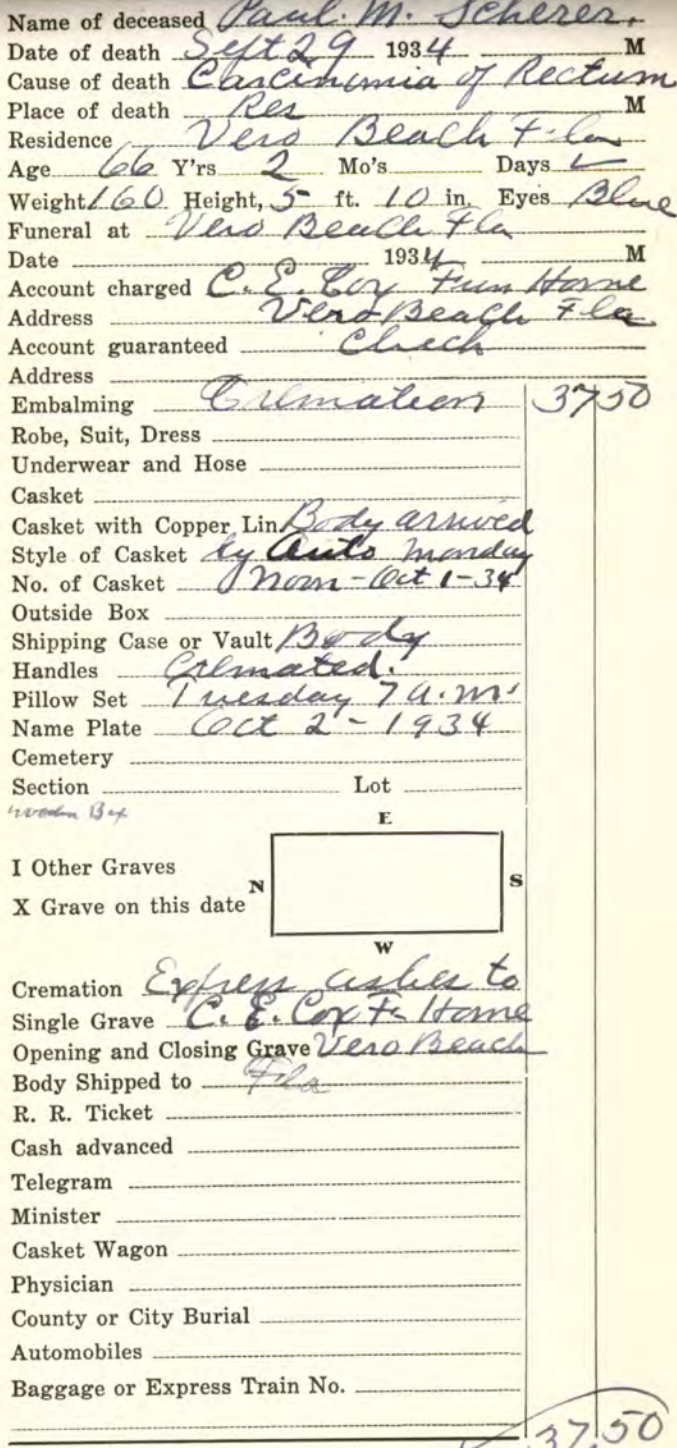 Name of deceased Paul. M. Scherer.
Date of death Sept 29 1934 M
Cause of death Carcinomia of Rectum
Place of death Res M
Residence Vero Beach Fla
Age 66 Y'rs 2 Mo's Days
Weight 160 Height, 5 ft. 10 in. Eyes Blue
Funeral at Vero Beach Fla
Date 1934 M
Account charged C. E. Cox Fun Home
Address Vero Beach Fla
Account guaranteed Check
Address
Embalming Cremation 37 50
Robe, Suit, Dress
Underwear and Hose
Casket
Casket with Copper Lin Body arrived
Style of Casket by Auto Monday
No. of Casket noon - Oct 1-34
Outside Box
Shipping Case or Vault Body
Handles Cremated.
Pillow Set Tuesday 7 a.m.
Name Plate Oct 2 - 1934
Cemetery
Section Lot
wooden Box
E
I Other Graves
N S
X Grave on this date
W
Cremation Express ashes to
Single Grave C. E. Cox F. Home
Opening and Closing Grave Vero Beach
Body Shipped to Fla
R. R. Ticket
Cash advanced
Telegram
Minister
Casket Wagon
Physician
County or City Burial
Automobiles
Baggage or Express Train No.
37.50